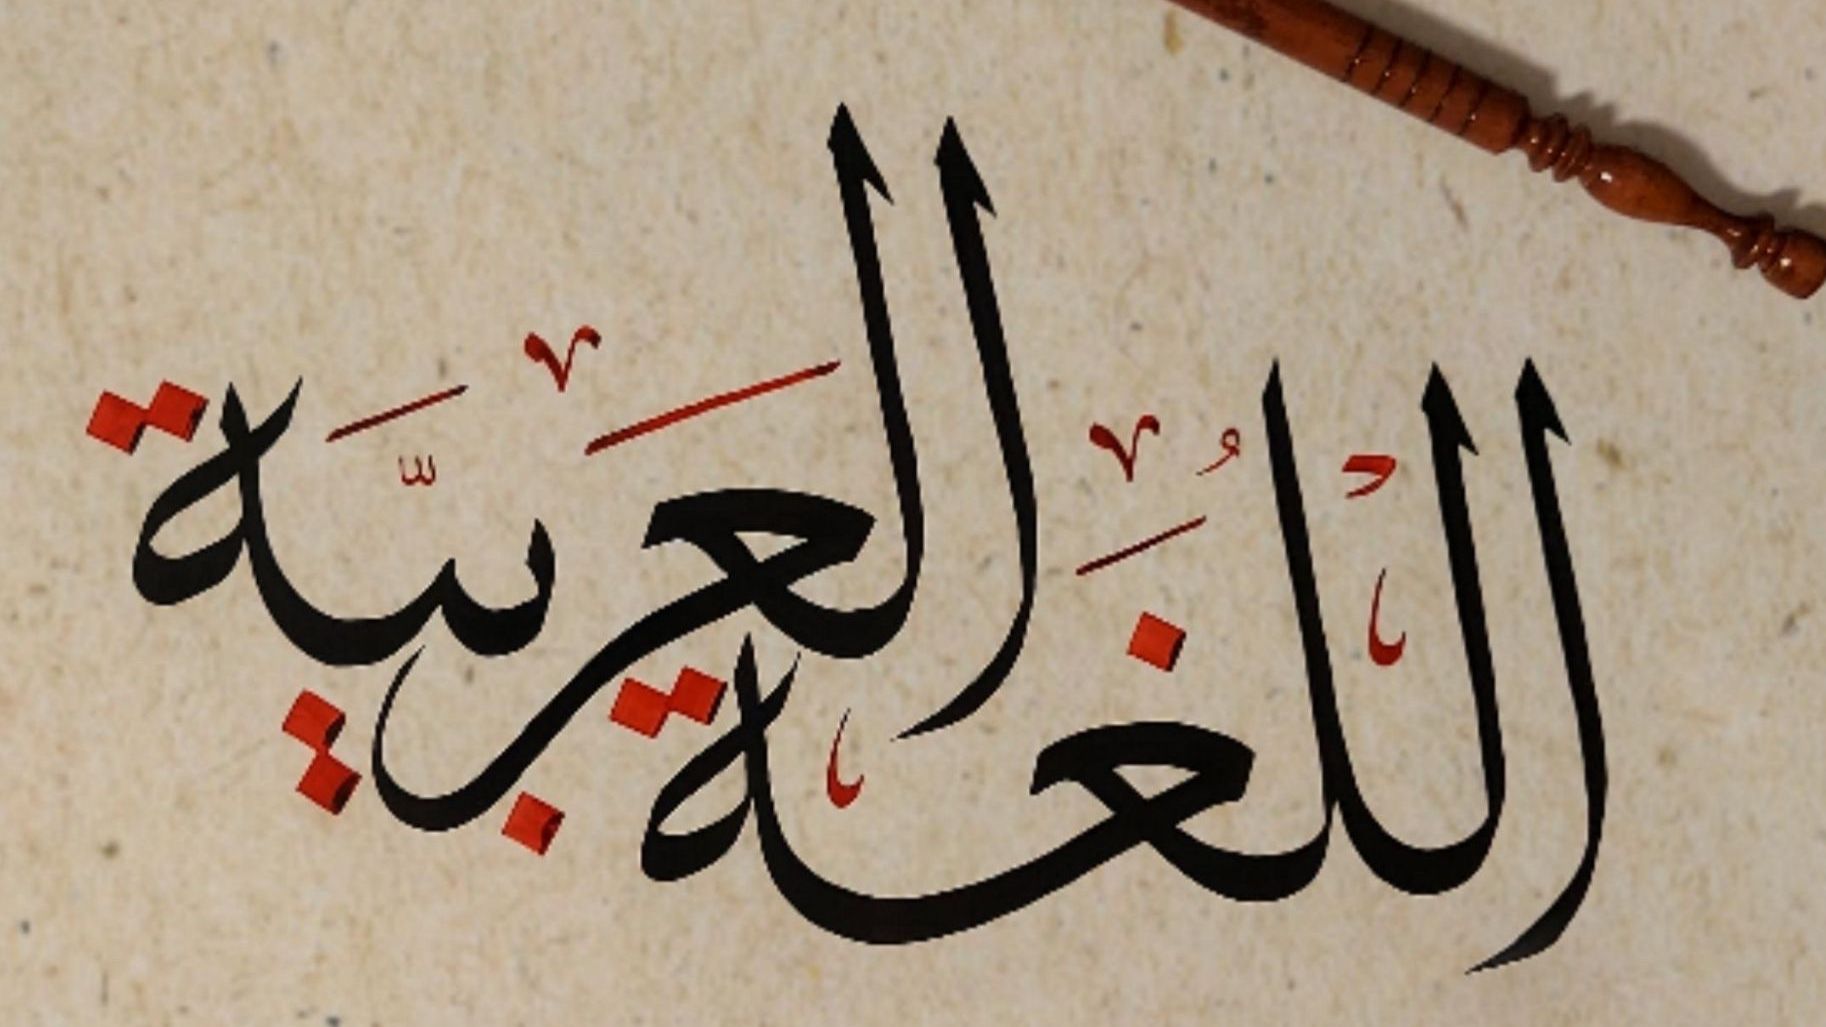 اللُّغَة العَرَبيَّة